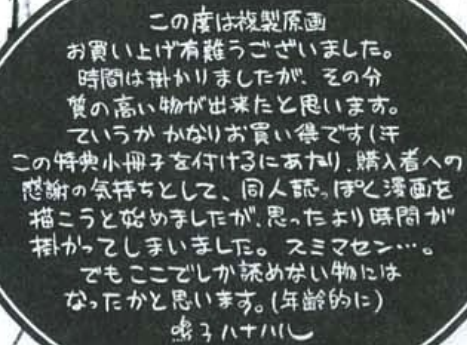 この度は複製原画
お買い上げ有難うございました。
時間は掛かりましたが、その分
質の高い物が出来たと思います。
ていうか かなりお買い得です(汗
この特典小冊子を付けるにあたり、購入者への
感謝の気持ちとして、同人誌っぽく漫画を
描こうと始めましたが、思ったより時間が
掛かってしまいました。スミマセン…。
でもここでしか読めない物には
なったかと思います。(年齢的に)
鳴子ハナハル